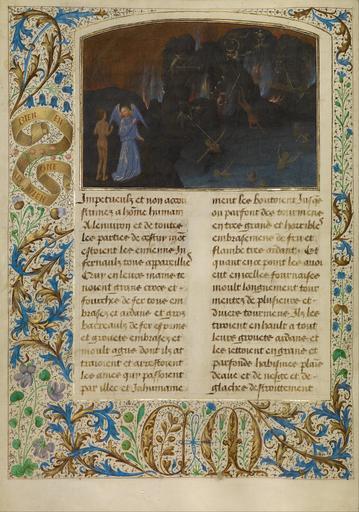 Impetueulx et non accou
stumez a home humain
A lenuiron et de toutes
les parties de
estoient les ennemis In
fernaulx tous appareillie
Qui en leurs mains te
noient grans crocz et
fourches de fer tous em
brasez et ardans et gros
de fer
et grouetz embrasez et
moult agus dont ilz at
traioient et arrestoient
les ames qui passoient
par illec et Inhumaine
ment les boutoient Jusqs
ou parfont des tourmens
entre grant et horrible
embrasement de feu et
flambe tres ardant. Et
quant en ce point les auoi
ent en celles fournaises
moult longuement tour
mentez de plusieurs et
diuers tourmens Ilz les
tiroient en hault a tout
leurs grouetz ardans et
les iettoient en grans et
parfonds habismes plains
deaue et de neiges et de
glaches destroittement